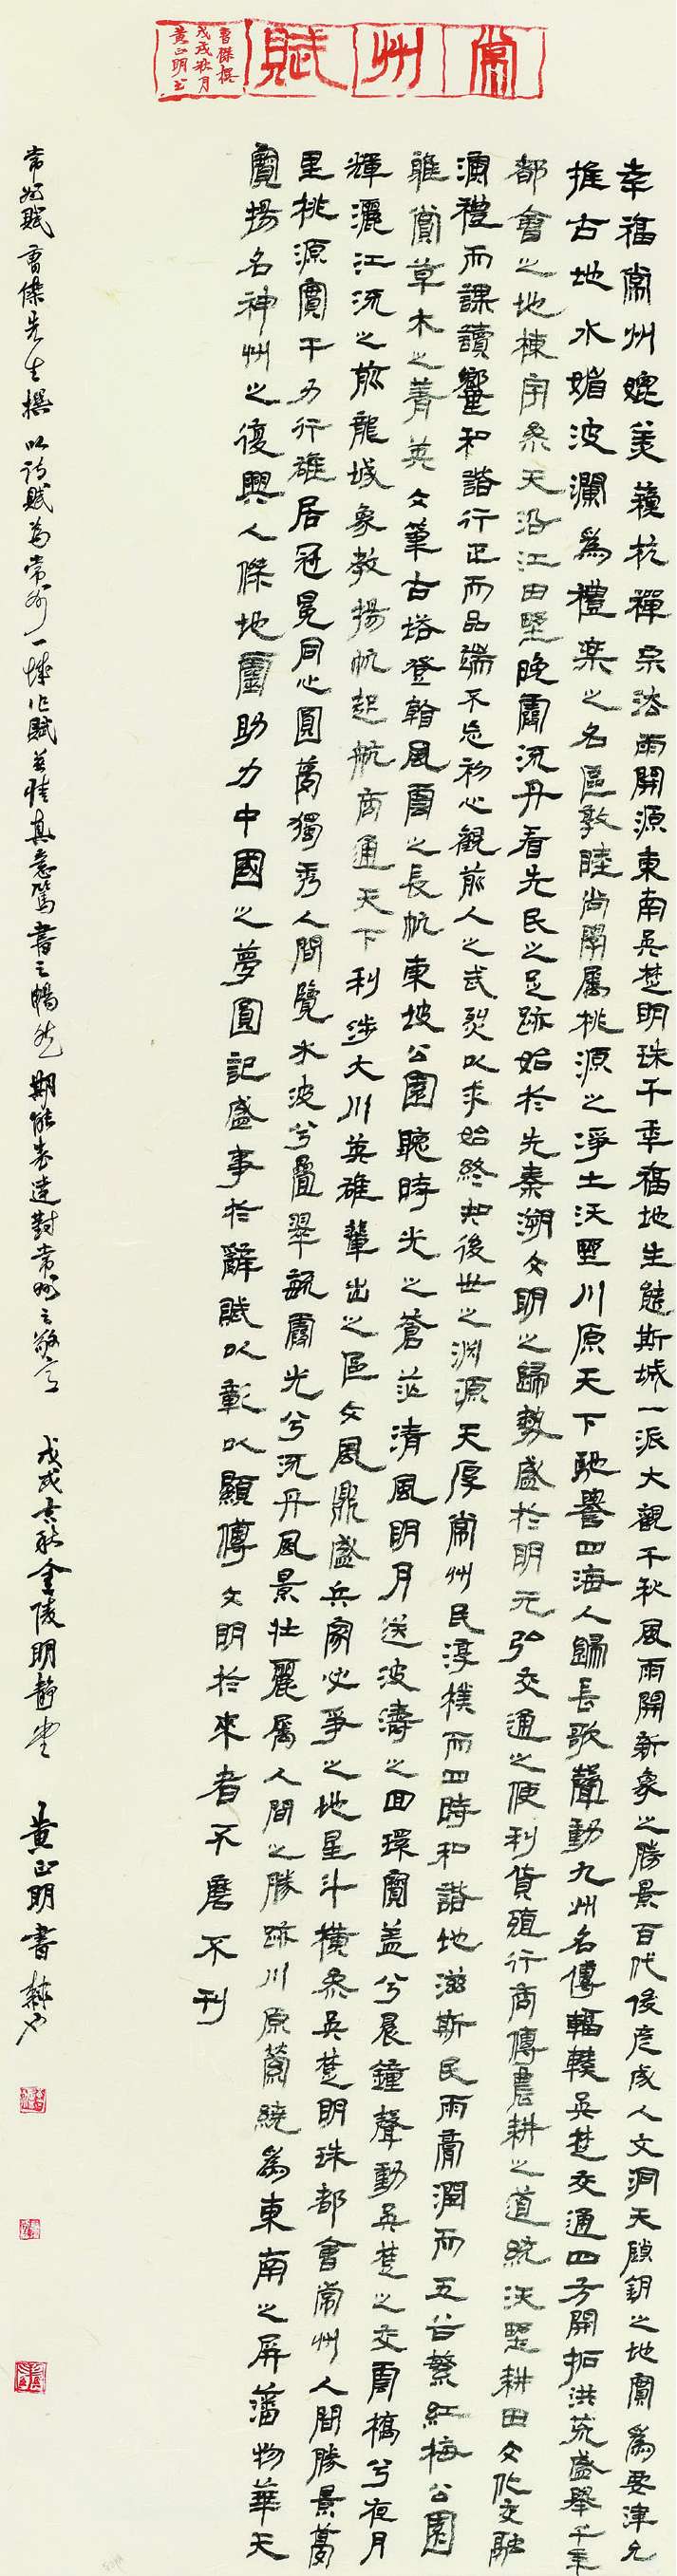 常州賦
曹傑撰
戊戌秋月
黄正明书
幸福常州媲美蘇杭禪宗法雨開源東南吳楚明珠千年福地生態斯城一派大觀千秋風雨開新象之勝景百代後彥成人文洞天鎖鑰之地實為要津允
推古地水媚波瀾為禮樂之名區敦睦尚學屬桃源之淨土沃野川原天下馳譽四海人歸長歌聲動九州名傳輻轅吳楚交通四方開拓洪荒盛舉千年
都會之地棟宇參天沿江田野晚霞流丹看先民之足跡始於先秦溯文明之歸勢盛於明元弘交通之便利貨殖行商傳農耕之道統沃野耕田文化交融
演禮而課讀黌和諧行正而品端不忘初心觀前人之武烈以求始終知後世之淵源天厚常州民淳樸而四時和諧地滋斯民雨膏潤而五谷繁紅梅公園
雅賞草木之菁英文筆古塔登翰風雲之長帆東坡公園聽時光之蒼茫清風明月送波濤之回環寶蓋兮晨鐘聲動吳楚之交雲橋兮夜月
輝灑江流之前龍城象教揚帆起航商通天下利涉大川英雄輩出之區文風鼎盛兵家必爭之地星斗橫參吳楚明珠都會常州人間勝景夢
里桃源實干力行雄居冠冕同心圓夢獨秀人間覽水波兮疊翠毓霞光兮流丹風景壯麗屬人間之勝跡川原縈繞為東南之屏藩物華天
寶揚名神州之復興人傑地靈助力中國之夢圓記盛事於辭賦以彰以顯傳文明於來者不磨不刊
常州賦曹傑先生撰以詩賦為常州一城作賦並情真意篤書之暢然期能表達對常州之敬意戊戌高秋金陵明靜堂黃正明書